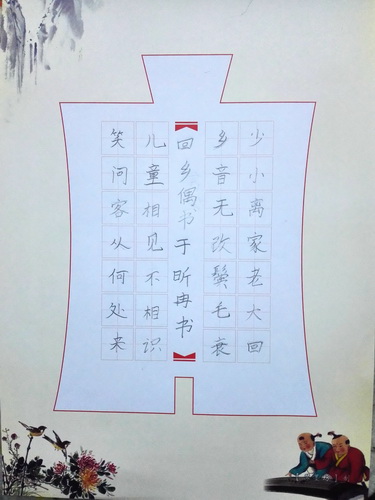 少小离家老大回
乡音无改鬓毛衰
回乡偶书于昕冉书
儿童相见不相识
笑问客从何处来